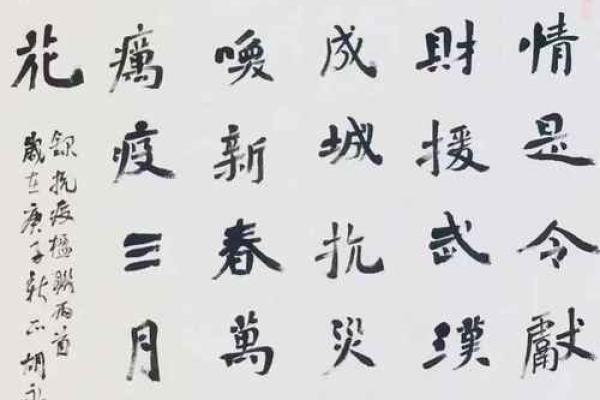 情是令獻
財援武漢
成城抗災
喚新春萬
癘疫三月
花
錄抗疫楹聯兩首
歲在庚子新正胡